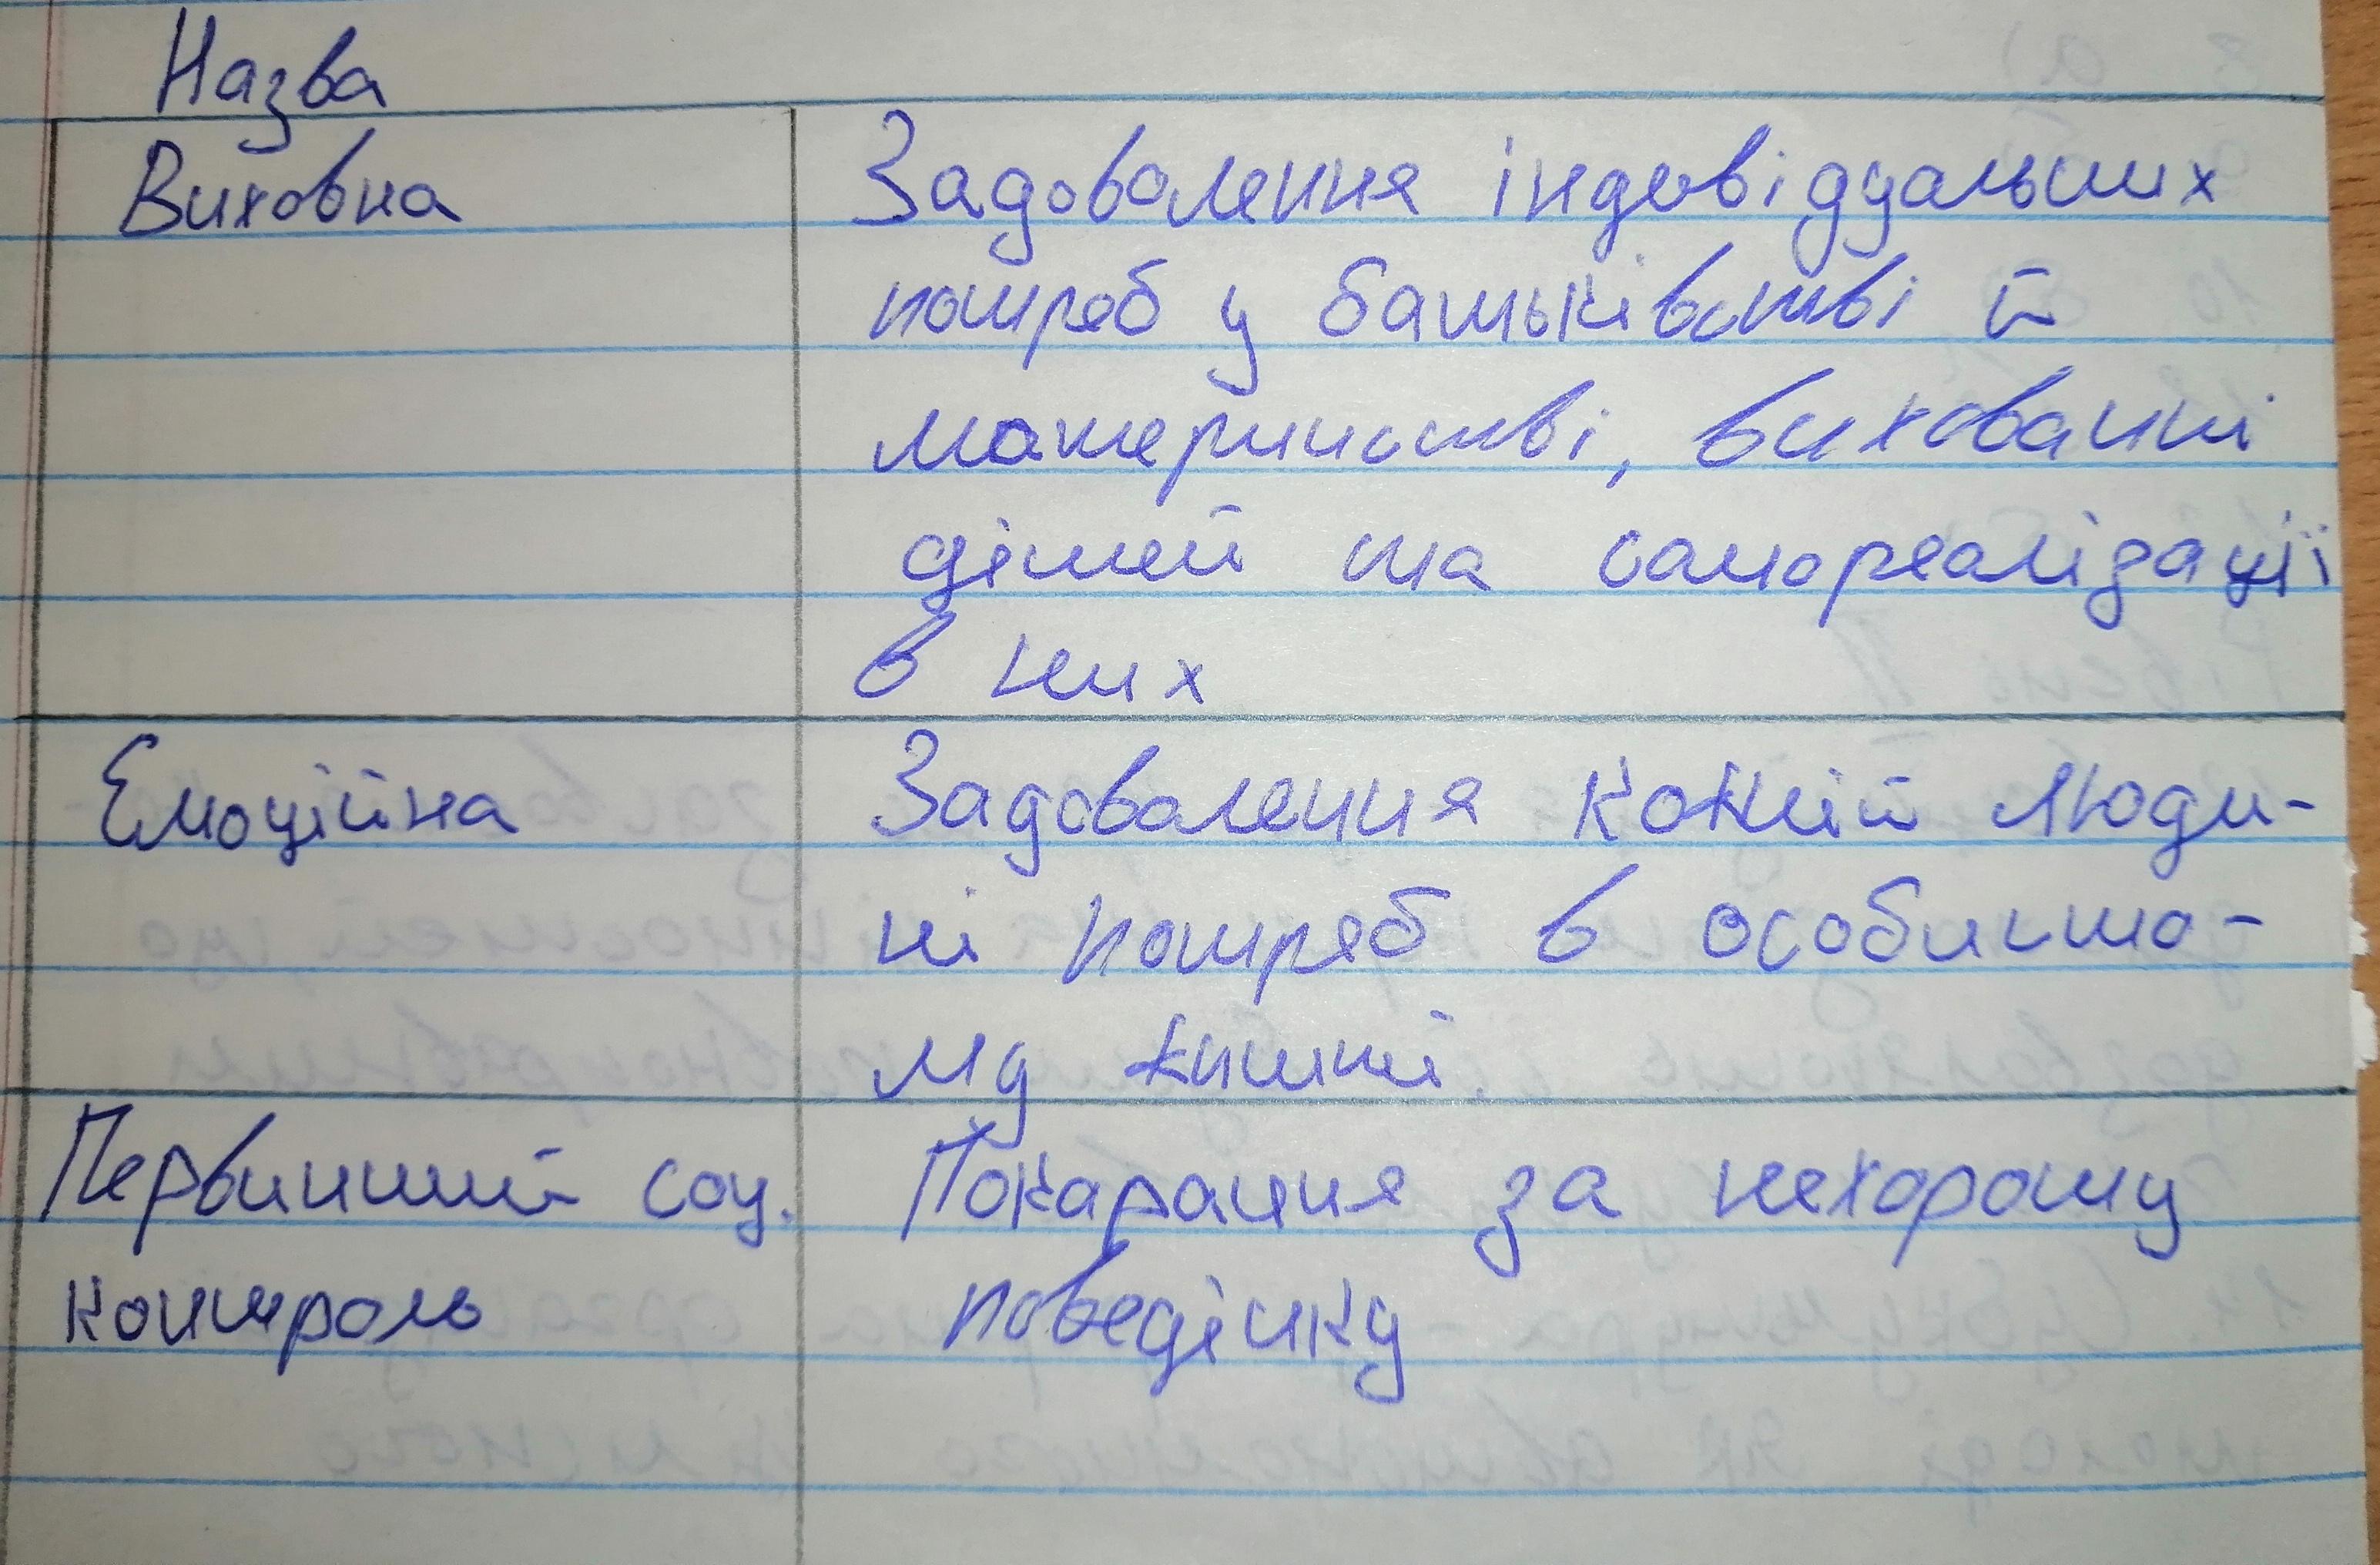 Назва
Виховна
Задоволення індивідуальних
потреб у батьківстві й
материнстві, вихованні
дітей та самореалізації
в них
Емоційна
Задоволення кожній люди-
ні потреб в особисто-
му житті.
Первинний соц.
контроль
Покарання за нехорошу
поведінку